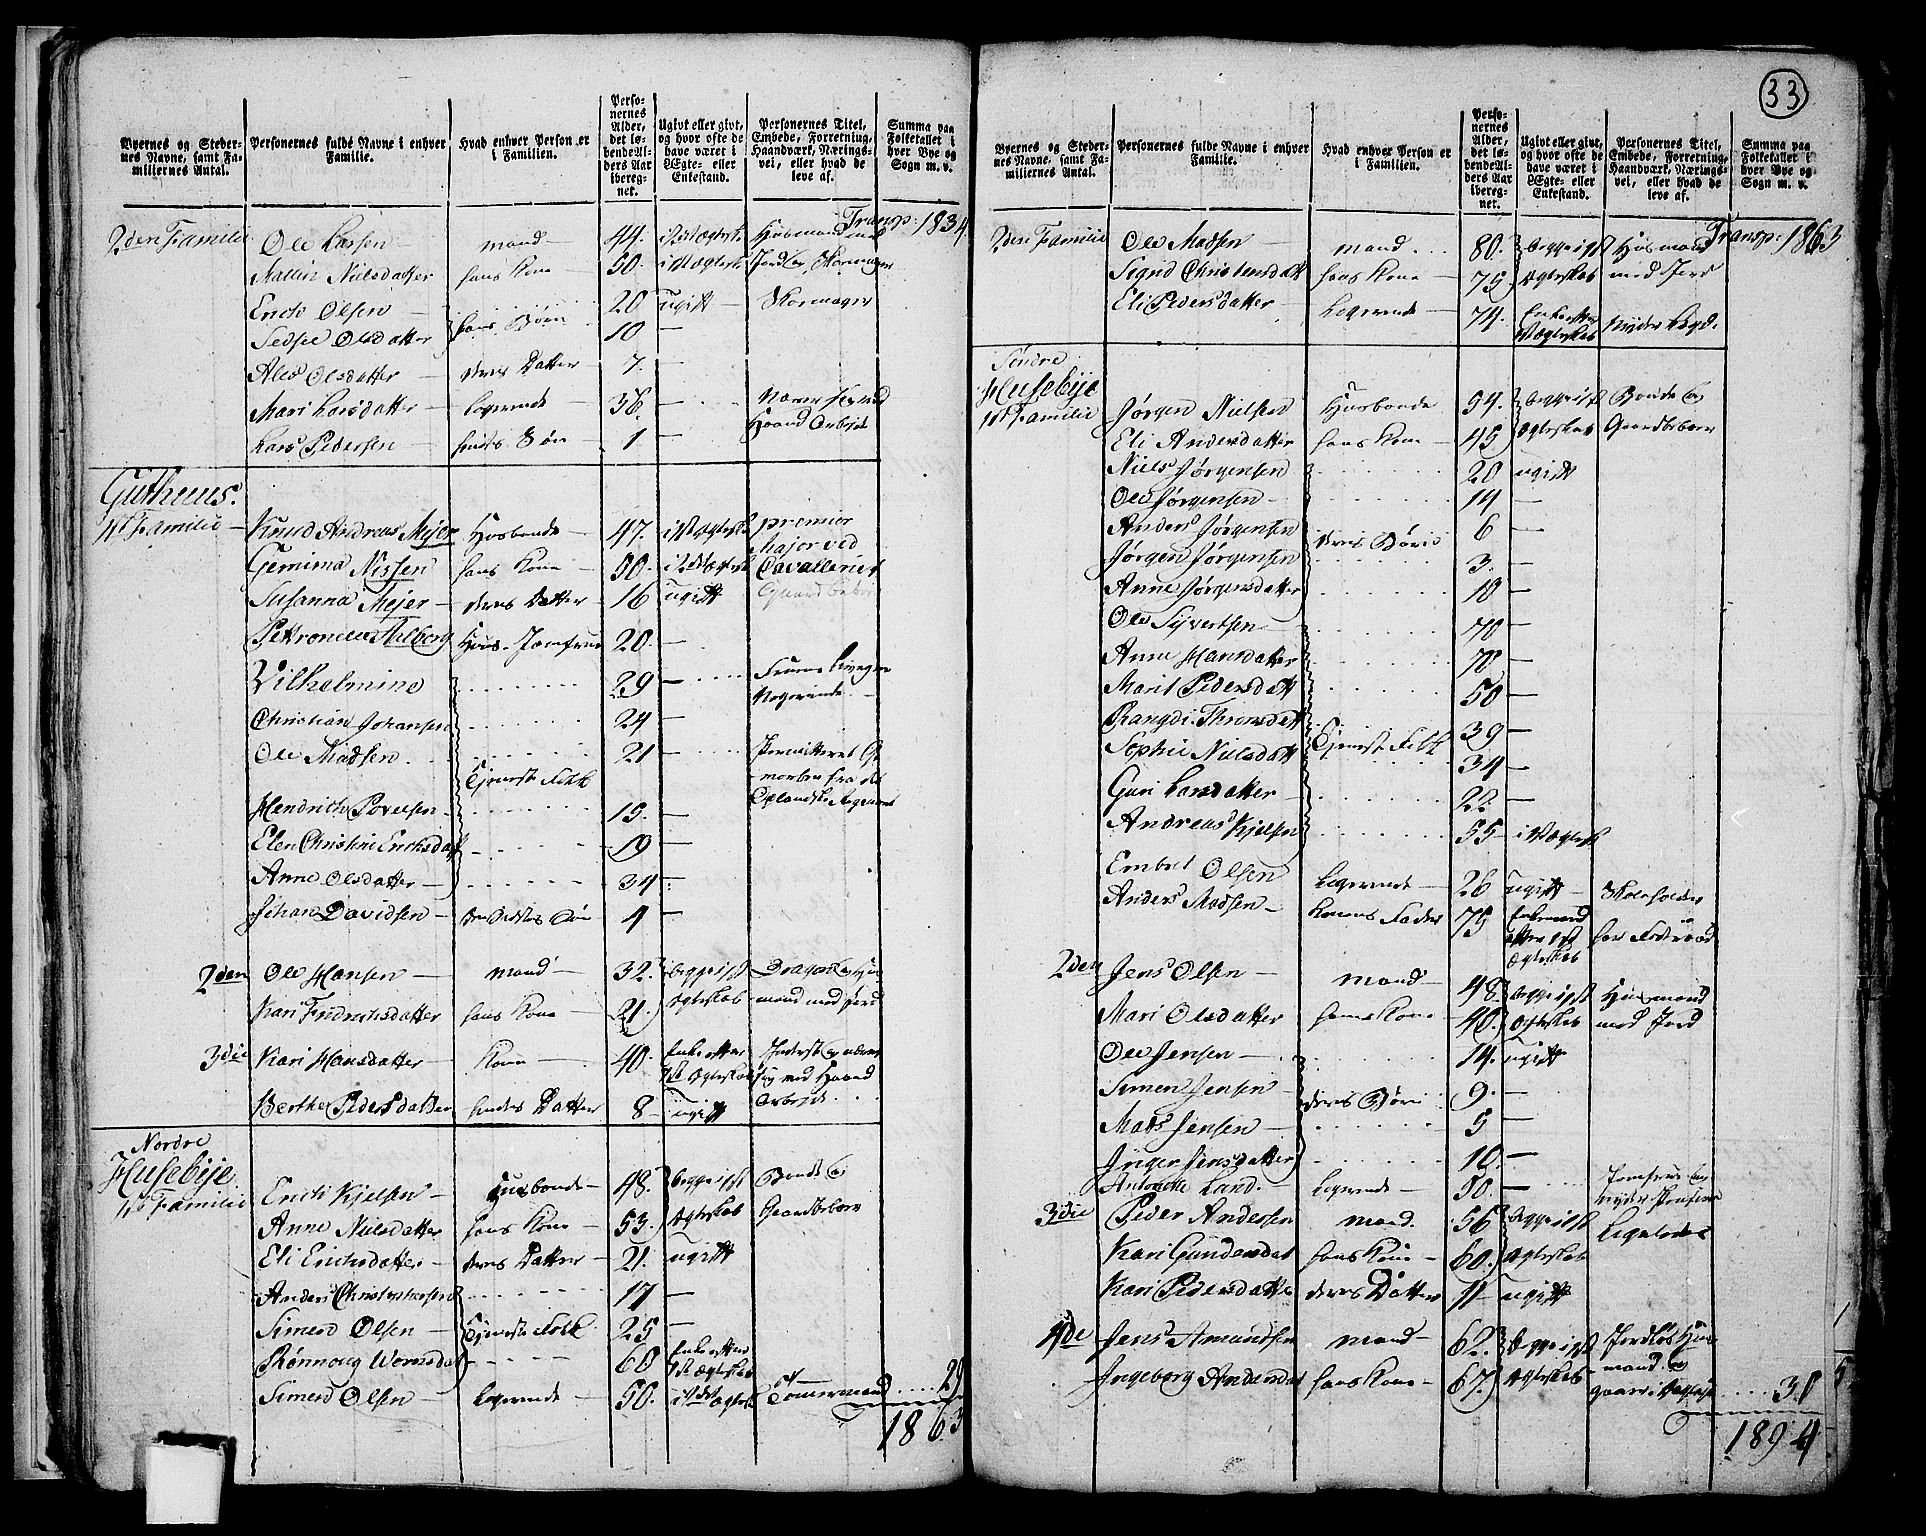 33
Byernes og Stedernes Navne, samt Familiernes Antal.
Personernes fulde Navne i enhver Familie.
Hvad enhver Person er i Familien.
Personernes Alder, det løbende Alders Aar iberegnet.
Ugivt eller givt, og hvor ofte de have været i Ægte- eller Enkestand.
Personernes Titel, Embede, Forretning, Haandværk, Næringsvei, eller hvad de leve af.
Summa paa Folketallet i hver Bye og Sogn m. v.
Transp: 1834
2den Familie Ole Larsen mand 44. Huusmand med
Mallin Nielsdatter hans Kone 50. Jord og Skomager
Erich Olsen 20 ugift Skomager
Sedsel Olsdatter hans Børn 10 —
Ales Olsdatter deres Datter 7. —
Mari Larsdatter Logerende 36.
Haand Arbejde
Lars Pedersen hendes Søn 1 —
Guthuus.
1st Familie Knud Andreas Mejer Husbonde 47. premier
Major ved
Gemima Nissen hans Kone 50. Cavalleriet
Susanna Mejer deres Datter 16 ugift Gaardbeboer
Petronelle Aalborg Huus-Jomfrue 20. —
Vilhelmine 29 —
Christian Johansen 24 —
Ole Madsen 21 —
Tjeneste Folk
Hendrich Povelsen 15. —
Elen Christine Erichsdatt 19 —
Anne Olsdatter 34 —
Johan Davidsen 4 —
2den Ole Hansen mand 32. begge i 1st Dragon og Huus
Kari Fridrichsdatter hans Kone 21. Ægteskab mand med Jord
3die Kari Hansdatter Kone 40. Enke efter
1st Ægteskab sig med Haand
Berthe Pedersdatter hendes Datter 8 ugift Arbejde
Nordre
Husebije
1st Familie Erich Kjelsen Husbonde 48. begge i 1st Bonde og
Anne Nielsdatter hans Kone 53. Ægteskab Gaardbeboer
Eli Erichsdatter deres Datter 21. ugift
Anders Christophersen 17 —
Simend Olsen Tjeneste Folk 25 —
Rønnoug Wornsdat 60 Enke efter
1st Ægteskab
Simend Olsen Logerende 50. Tømmermand 29
1863
Byernes og Stedernes Navne, samt Familiernes Antal.
Personernes fulde Navne i enhver Familie.
Hvad enhver Person er i Familien.
Personernes Alder, det løbende Alders Aar iberegnet.
Ugivt eller givt, og hvor ofte de have været i Ægte- eller Enkestand.
Personernes Titel, Embede, Forretning, Haandværk, Næringsvei, eller hvad de leve af.
Summa paa Folketallet i hver Bye og Sogn m. v.
Transp: 1863
2den Familie Ole Madsen mand 80. begge i 1st Huusmand
Signd Christensdatt hans Kone 75 Ægteskab med Jord
Eli Pedersdatter Logerende 74. nyder Lægd.
Søndre
Husebije
1st Familie Jørgen Nielsen Husbonde 54. begge i 1st Bonde og
Eli Andersdatter hans Kone 45 Ægteskab Gaardbeboer
Niels Jørgensen 20 ugift
Ole Jørgensen 14 —
Anders Jørgensen deres Børn 6 —
Jørgen Jørgensen 3. —
Anne Jørgensdatter 10 —
Ole Syvertsen 70 —
Anne Hansdatter 70 —
Marit Pedersdatt 50 —
Rangdi Thronsdatt Tjeneste Folk 39 —
Sophie Nielsdatt 34 —
Guri Larsdatter 22 —
Andreas Kjelsen 55 — i 1st Ægtesk
Embret Olsen Logerende 26 ugift Skoleholder
Anders Madsen Konens Fader 75 Enkemand
efter 1st
Ægteskab
har Føderaad
2den Jens Olsen mand 48. begge i 1st Huusmand
Mari Olsdatter hans Kone 40. Ægteskab med Jord
Ole Jensen 14. ugift
Simen Jensen deres Børn 9. —
Mats Jensen 5 —
Inger Jensdatter 10. —
Antonette Lund Logerende 50. — Jomfrue og
nyder Pension
3die Peder Andersen mand 56 begge i 1st
Kari Gundersdat hans Kone 60. Ægteskab
Kari Pedersdatte deres Datter 11 ugift
4de Jens Amundsen mand 62. begge i 1st Jordløs Huus
mand og
Ingeborg Andersdat hans Kone 67. Ægteskab 31
1894